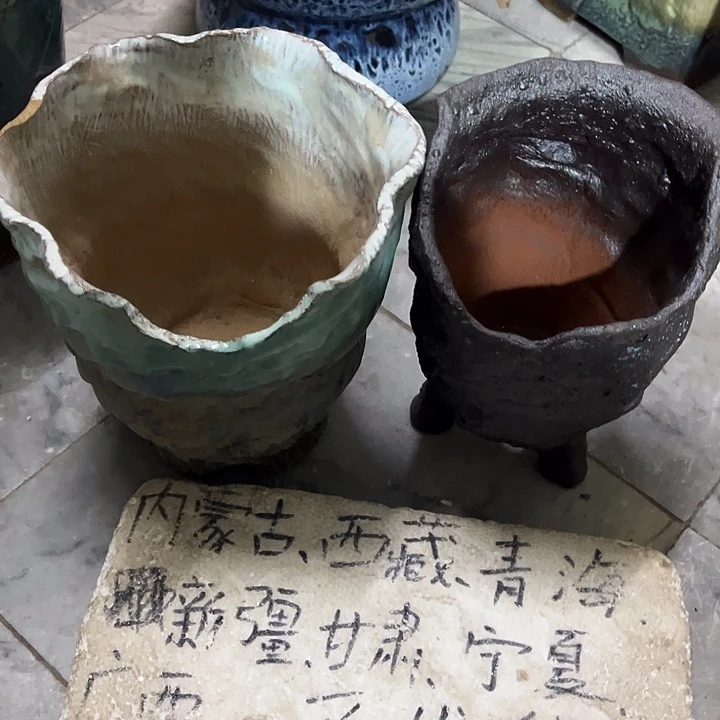 内蒙古、西藏、青海
新疆、甘肃、宁夏
广西